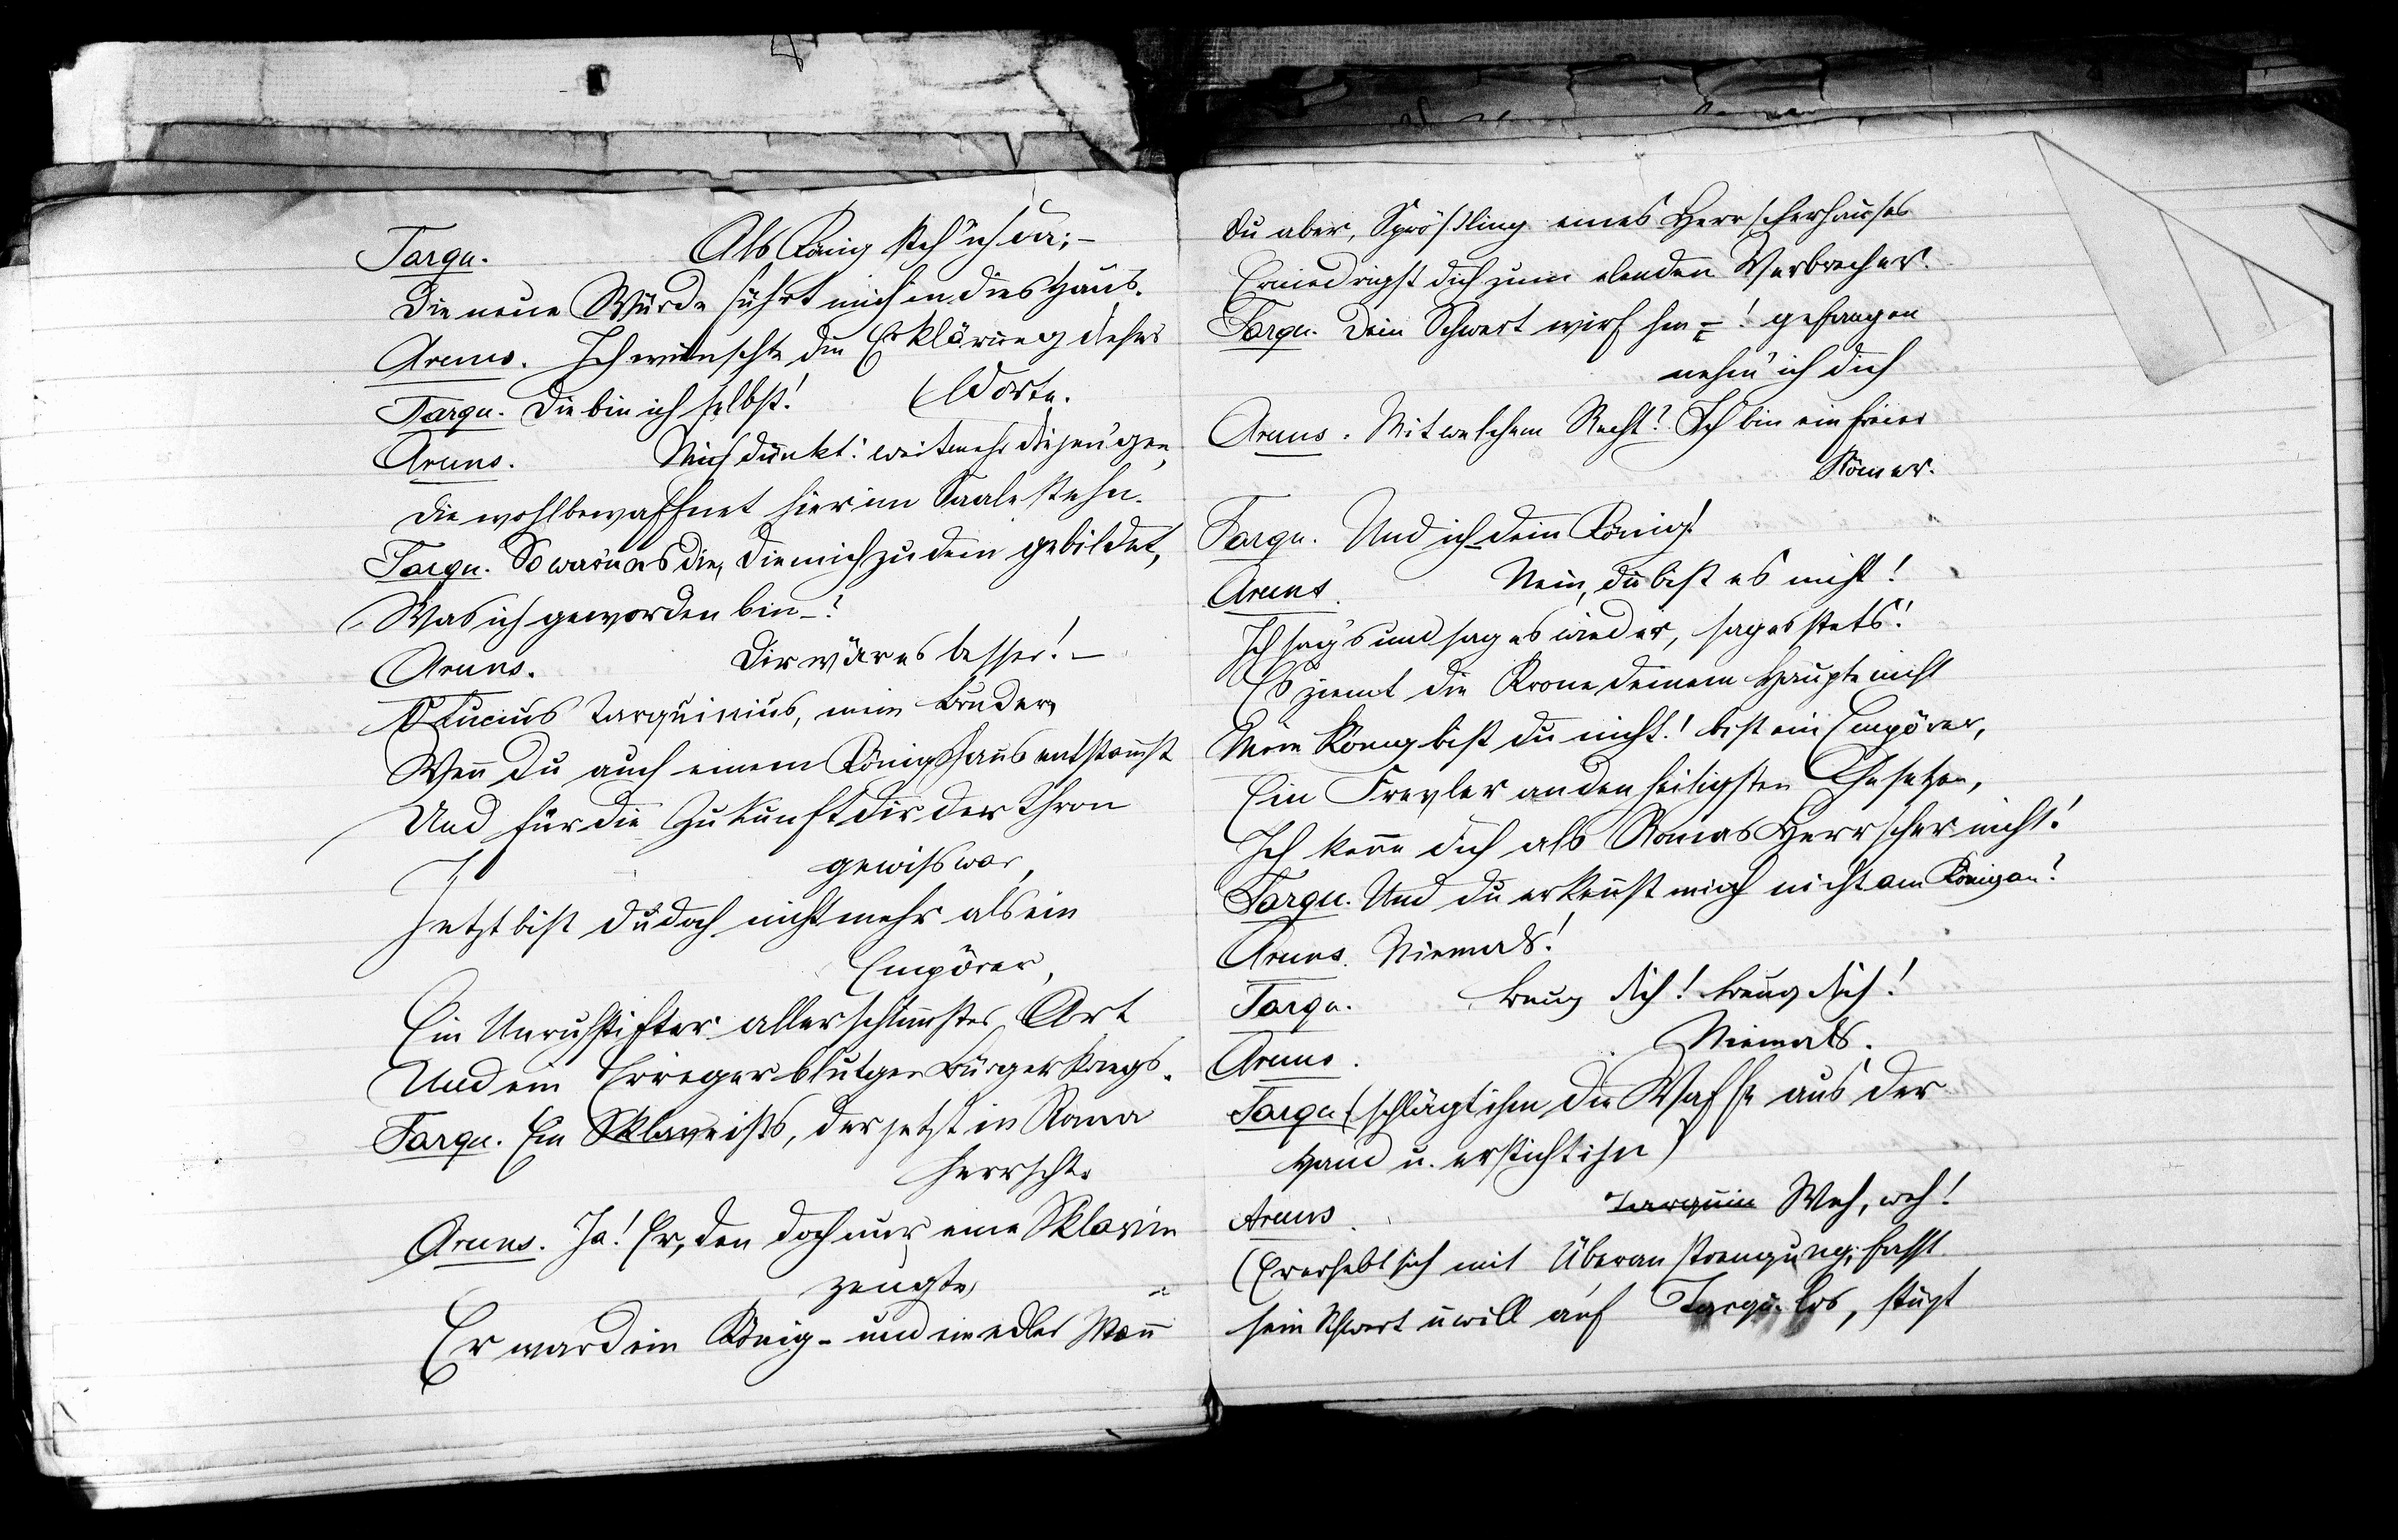 Tarqu. Als König steh' ich da; –
Die neue Würde führt mich in dies Haus.
Aruns. Ich wünschte die Erklärung dieser
(Worte.
Tarqu. Die bin ich selbst!
Aruns. Mich dünkt: weitmehr diejen'gen,
Die wohlbewaffnet hier im Saale stehn.
Tarqu. So wären es die, die mich zu dem gebildet,
Was ich geworden bin –?
Aruns. Dir wär es besser! –
O Lucius Tarquinius, mein Bruder,
Wenn du auch einem Königshaus entstammst
Und für die Zukunft dir der Thron
gewiss war,
Jetzt bist du doch nicht mehr als ein
Empörer,
Ein Unruhstifter allerschlimmster Art
Und ein Erreger blutgen Bürgerkriegs.
Tarqu. Ein Sklave ists, der jetzt in Roma
herrscht.
Aruns. Ja! Er, den doch nur eine Sklavin
zeugte,
Er ward ein König – und ein edler Mann
Du aber, Sprößling eines Herrscherhauses
Erniedrigst dich zum elenden Verbrecher.
Tarqu. Dein Schwert wirf hin –! gefangen
nehm' ich dich
Aruns. Mit welchem Recht? Ich bin ein freier
Römer.
Tarqu. Und ich dein König!
Aruns. Nein, du bist es nicht!
Ich sag's und sag es wieder, sag es stets!
Es ziemt die Krone deinem Haupte nicht
Mein König bist du nicht! bist ein Empörer,
Ein Frevler an den heiligsten Gesetzen,
Ich kenn dich als Romas Herrscher nicht!
Tarqu. Und du erkennst mich nicht am König an?
Aruns. Niemals!
Tarqu. Beug dich! Beug dich!
Aruns. Niemals.
Tarqu. (schlägt ihm die Waffe aus der
Hand u. ersticht ihn)
Aruns. Tarquin Weh, weh!
(Er erhebt sich mit Überanstrengung, fasst
sein Schwert u will auf Tarqu. los, stürzt